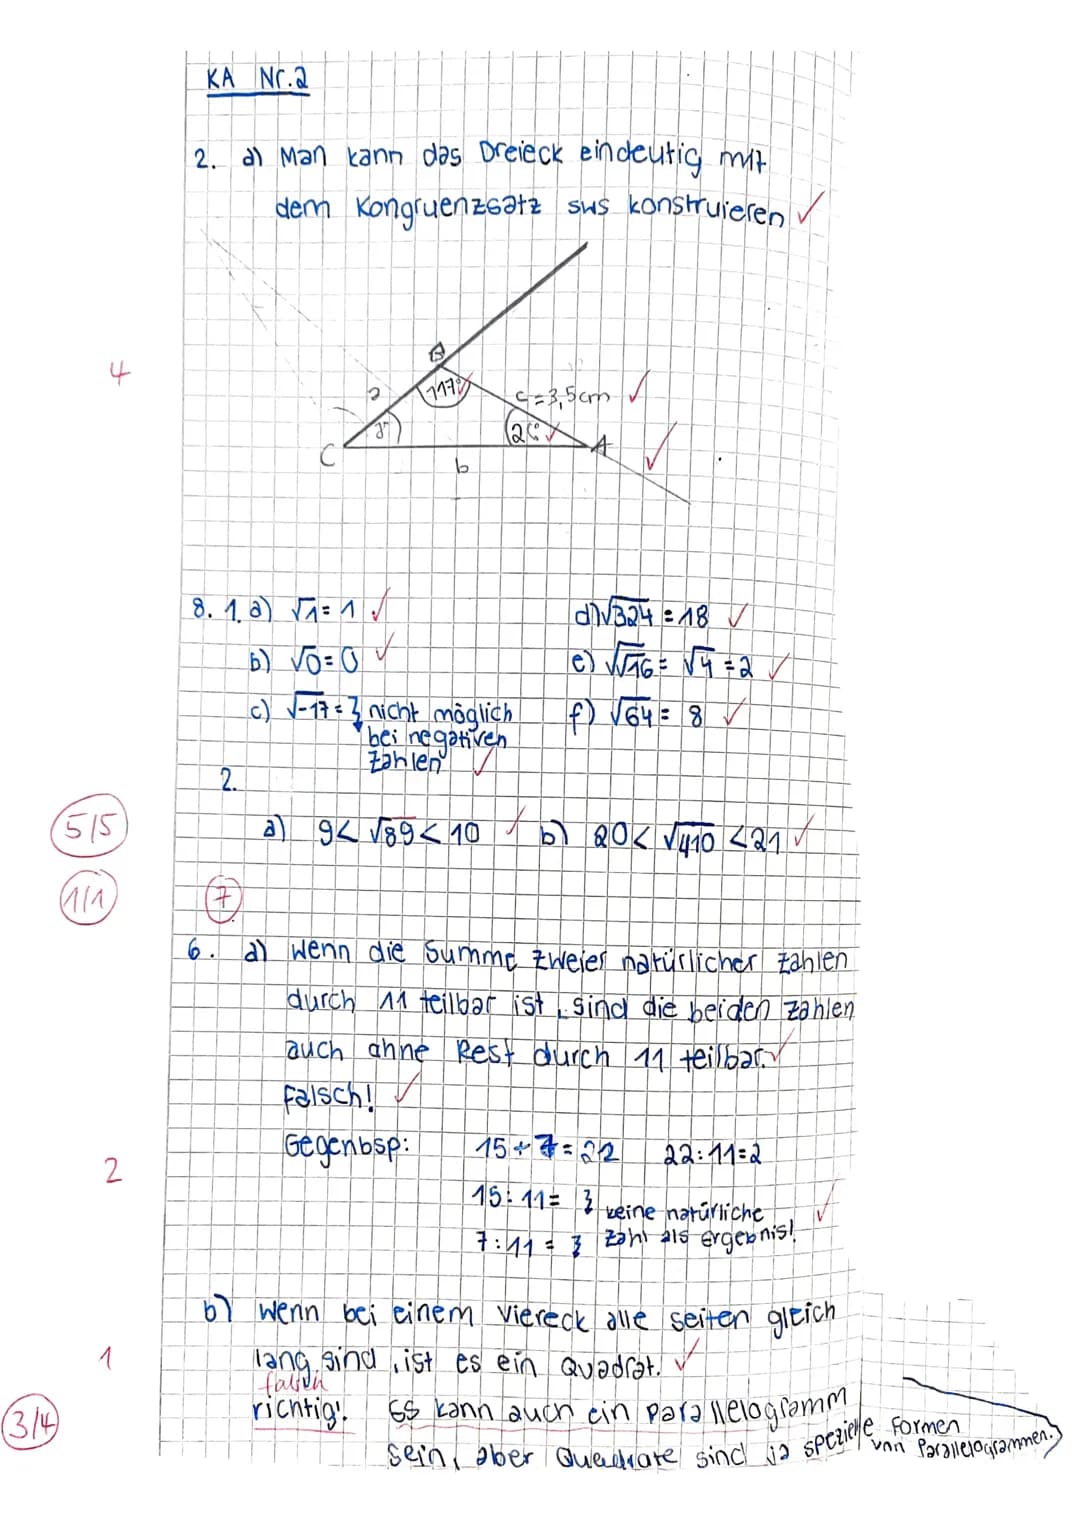 KA Nr.2
2. a) Man kann das Dreieck eindeutig mit
dem Kongruenzsatz sws konstruieren ✓
B
4
a
117°
c=3,5cm ✓
C
A
b
8. 1. a) √1 = 1 ✓
d) √324 = 18 ✓
b) √0 = 0 ✓
e) √√16 = √4 = 2 ✓
c) √-17 = nicht möglich
bei negativen
Zahlen ✓
f) √64 = 8 ✓
2.
5/5
a) 9 < √89 < 10 ✓ b) 20 < √410 < 21 ✓
1/1
7
6. a) Wenn die Summe zweier natürlicher Zahlen
durch 11 teilbar ist, sind die beiden Zahlen
auch ohne Rest durch 11 teilbar. ✓
Falsch! ✓
Gegenbsp: 15 + 7 = 22 22:11=2
2
15:11= keine natürliche
7:11 = Zahl als Ergebnis! ✓
b) Wenn bei einem Viereck alle Seiten gleich
1
lang sind, ist es ein Quadrat. ✓
falsch
3/4
richtig! Es kann auch ein Parallelogramm
sein, aber Quadrate sind ja spezielle Formen
von Parallelogrammen.